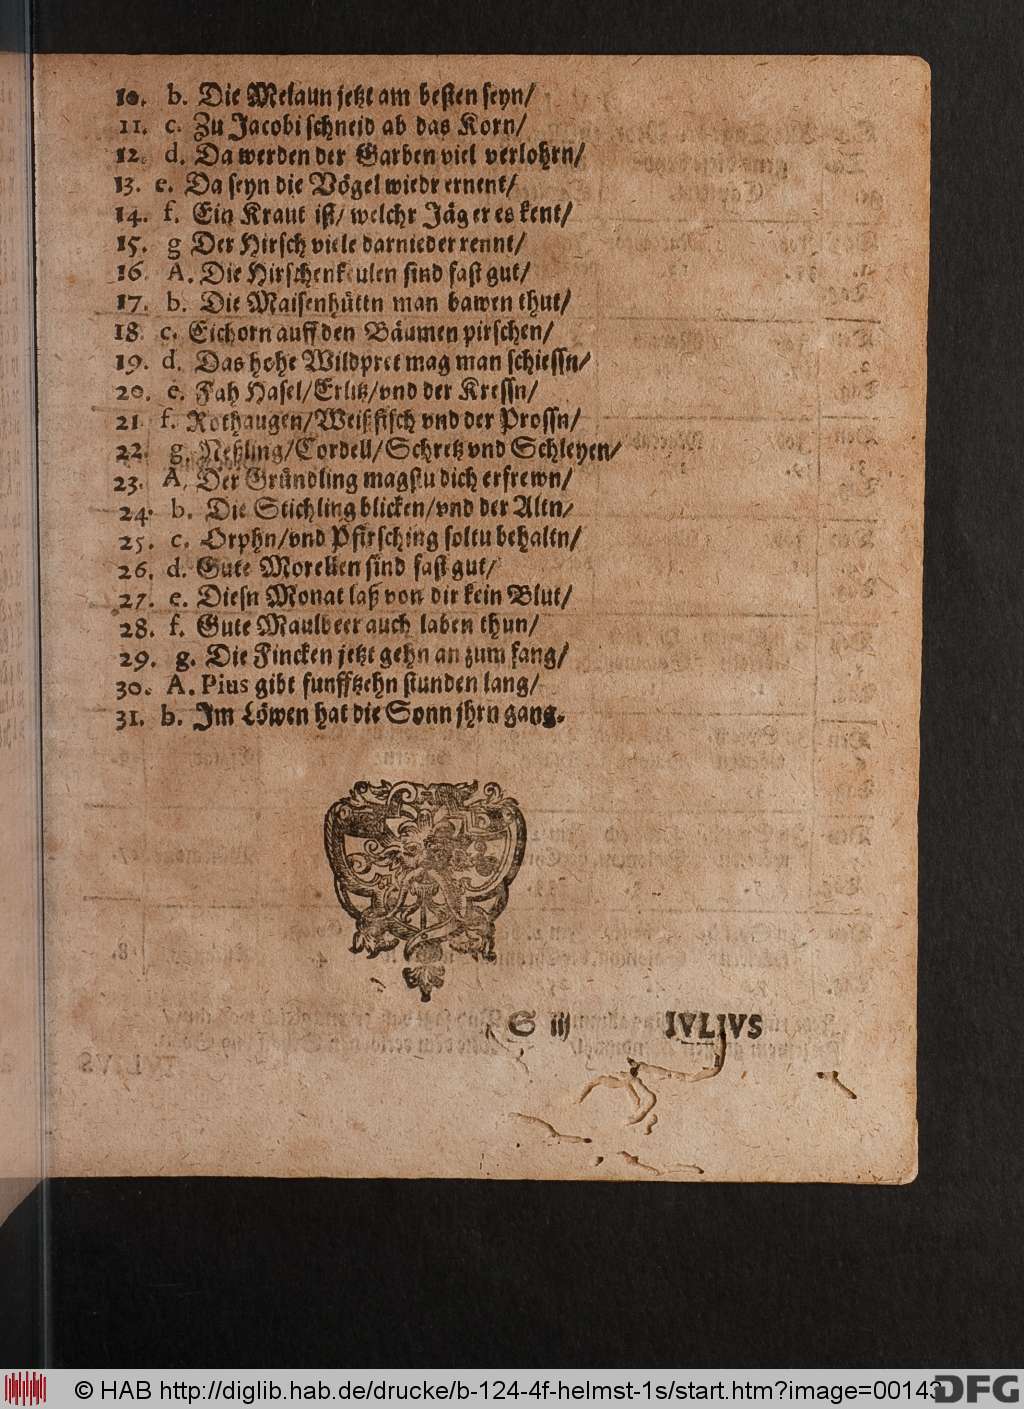 10. b. Die Melaun jetzt am besten seyn/
11. c. Zu Jacobi schneid ab das Korn/
12. d. Da werden der Garben viel verlohrn/
13. e. Da seyn die Vögel wiedr ernent/
14. f. Ein Kraut ist/ welchr Jäger es kent/
15. g Der Hirsch viele darnieder rennt/
16. A. Die Hirschenkeulen sind fast gut/
17. b. Die Maisenhüttn man bawen thut/
18. c. Eichorn auff den Bäumen pirschen/
19. d. Das hohe Wildpret mag man schiessn/
20. e. Fah Hasel/Erlitz/vnd der Kressn/
21. f. Rothaugen/Weißfisch vnd der Prossn/
22. g. /Cordell/Schretz vnd Schleyen/
23. A. Der Gründling magstu dich erfrewn/
24. b. Die Stichling blicken/vnd der Altn/
25. c. Orphn/vnd Pfirsching soltu behaltn/
26. d. Gute Morellen sind fast gut/
27. e. Diesn Monat laß von dir kein Blut/
28. f. Gute Maulbeer auch laben thun/
29. g. Die Fincken jetzt gehn an zum fang/
30. A. Pius gibt funfftzehn stunden lang/
31. b. Im Löwen hat die Sonn jhrn gang.
S iij IVLIVS
© HAB http://diglib.hab.de/drucke/b-124-4f-helmst-1s/start.htm?image=00143
DFG